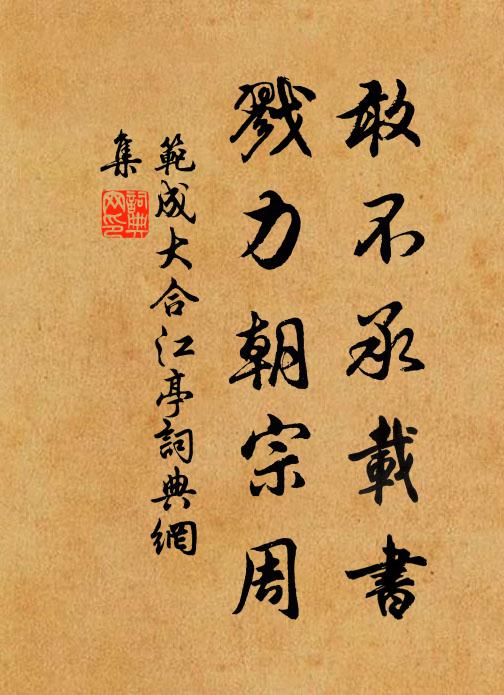 敢不承載書
戮力朝宗周
範成大合江亭詞典網
集
詞典
网印